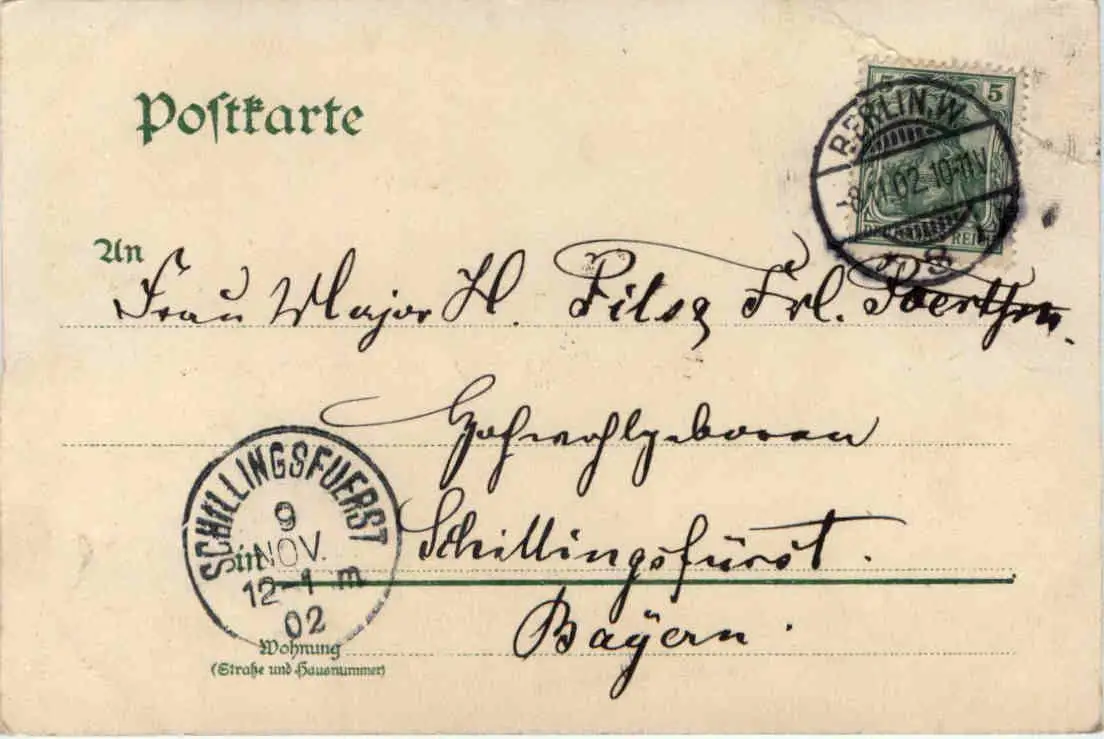 Postkarte
5 5
BERLIN. W.
8.11.02.10-11V.
REICH
* 8
An
Frau Major H. Pilsg Frl.
Hochwohlgeboren
SCHILLINGSFUERST
9
NOV.
12-1 m
02
in
Schillingsfürst.
Bayern.
Wohnung
(Straße und Hausnummer)